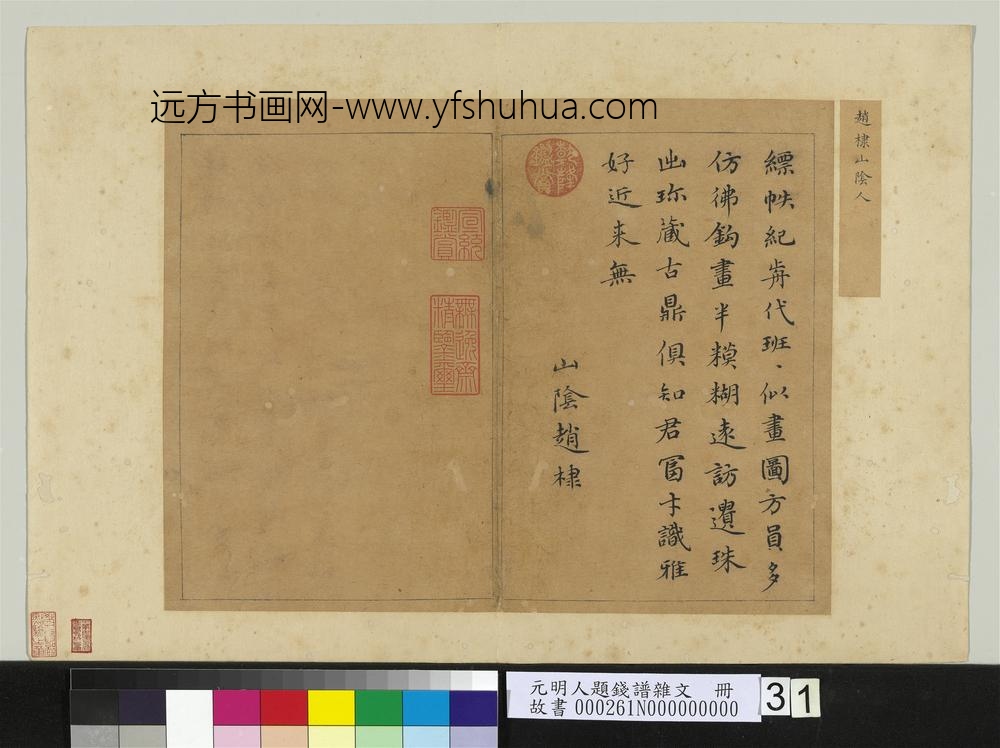 远方书画网-www.yfshuhua.com
趙棣山陰人
縹帙紀歬代班〻似畫圖方員多
仿彿鈎畫半糢糊遠訪遺珠
出珎藏古鼎俱知君冨才識雅
好近来無
山陰趙棣
乾隆鑑賞
宣統鑑賞
無逸齋精鑒璽
元明人題錢譜雜文 冊
故書 000261N000000000
31